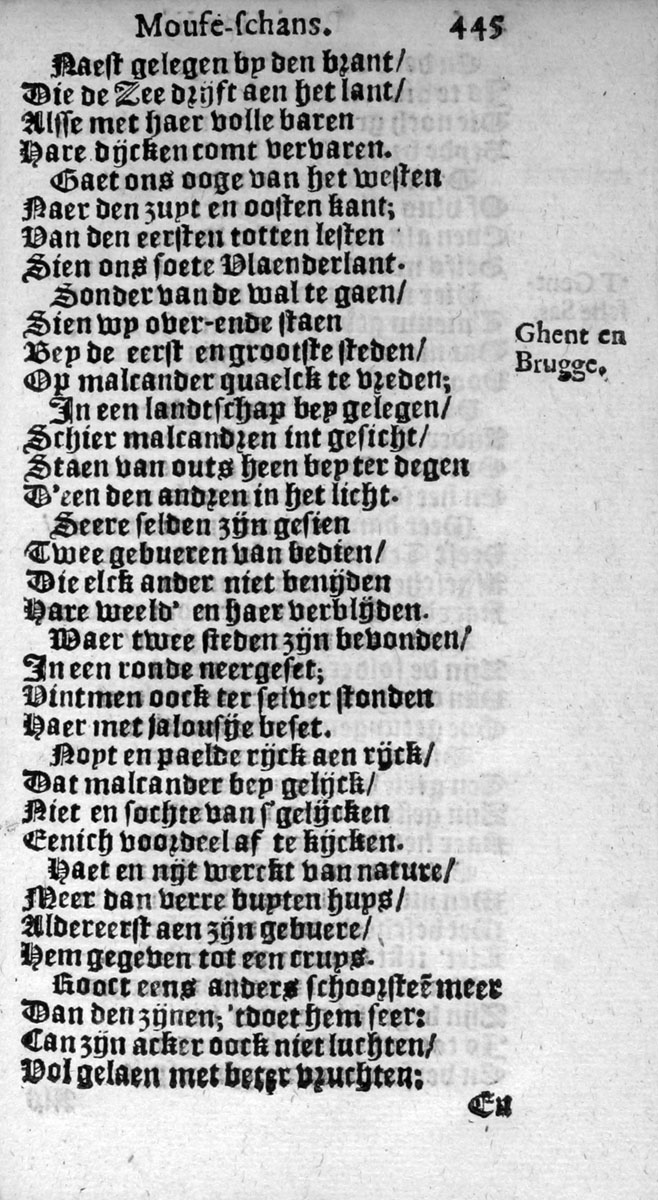 Mouse-schans. 445
Naest gelegen by den brant/
Die de Zee drijft aen het lant/
Alsse met haer volle baren
Hare dijcken comt vervaren.
Gaet ons ooge van het westen
Naer den zuyt en oosten kant;
Van den eersten totten lesten
Sien ons soete Vlaenderlant.
Sonder van de wal te gaen/
Sien wy over-ende staen
Bey de eerst en grootste steden/
Op malcander quaelck te vreden;
In een landtschap bey gelegen/
Schier malcandren int gesicht/
Staen van outs heen bey ter degen
D'een den andren in het licht.
Seere selden zijn gesien
Twee gebueren van bedien/
Die elck ander niet benijden
Hare weeld' en haer verblijden.
Waer twee steden zijn bevonden/
In een ronde neergeset;
Vintmen oock ter selver stonden
Haer met jalousije beset.
Noyt en paelde rijck aen rijck/
Dat malcander bey gelijck/
Niet en sochte van s'gelijcken
Eenich voordeel af te kijcken.
Haet en nijt werckt van nature/
Meer dan verre buyten huys/
Aldereerst aen zijn gebuere/
Hem gegeven tot een cruys.
Rooct eens anders schoorsteē meer
Dan den zijnen; 'tdoet hem seer:
Can zijn acker oock niet luchten/
Vol gelaen met beter vruchten:
En
Ghent en
Brugge.